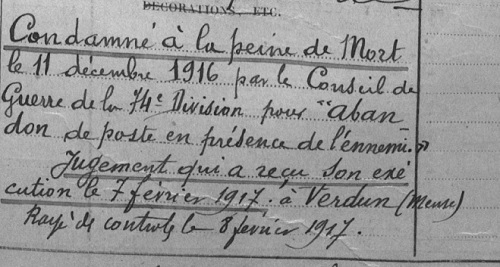 DECORATIONS, ETC.
Condamné à la peine de Mort
le 11 décembre 1916 par le Conseil de
Guerre de la 74e Division pour "aban
don de poste en présence de l'énnemi."
Jugement qui a reçu son exé
cution le 7 février 1917. à Verdun (Meuse)
Rayé des controles le 8 février 1917.